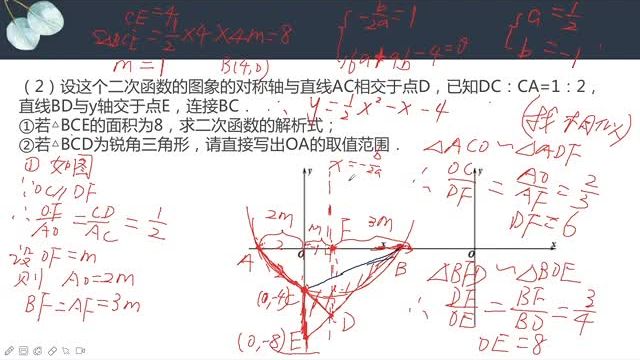 CE=4
S△BCE=1/2×4×4m=8
m=1
B(4,0)
-b/2a=1
16a+4b-4=0
a=1/2
b=-1
（2）设这个二次函数的图象的对称轴与直线AC相交于点D，已知DC：CA=1：2，
直线BD与y轴交于点E，连接BC．
∴ y=1/2x²-x-4
①若△BCE的面积为8，求二次函数的解析式；
②若△BCD为锐角三角形，请直接写出OA的取值范围．
① 如图
∵OC∥DF
∴ OF/AO=CD/AC=1/2
设OF=m
则 AO=2m
BF=AF=3m
x=-b/2a
y
2m
m
F
3m
A
2
0
1
x
B
(0,-4)
C
D
(0,-8)
E
△ACO∽△ADF
∴ OC/DF=AO/AF=2/3
DF=6
y
x
△BFD∽△BOE
∴ DF/OE=BF/BO=3/4
OE=8